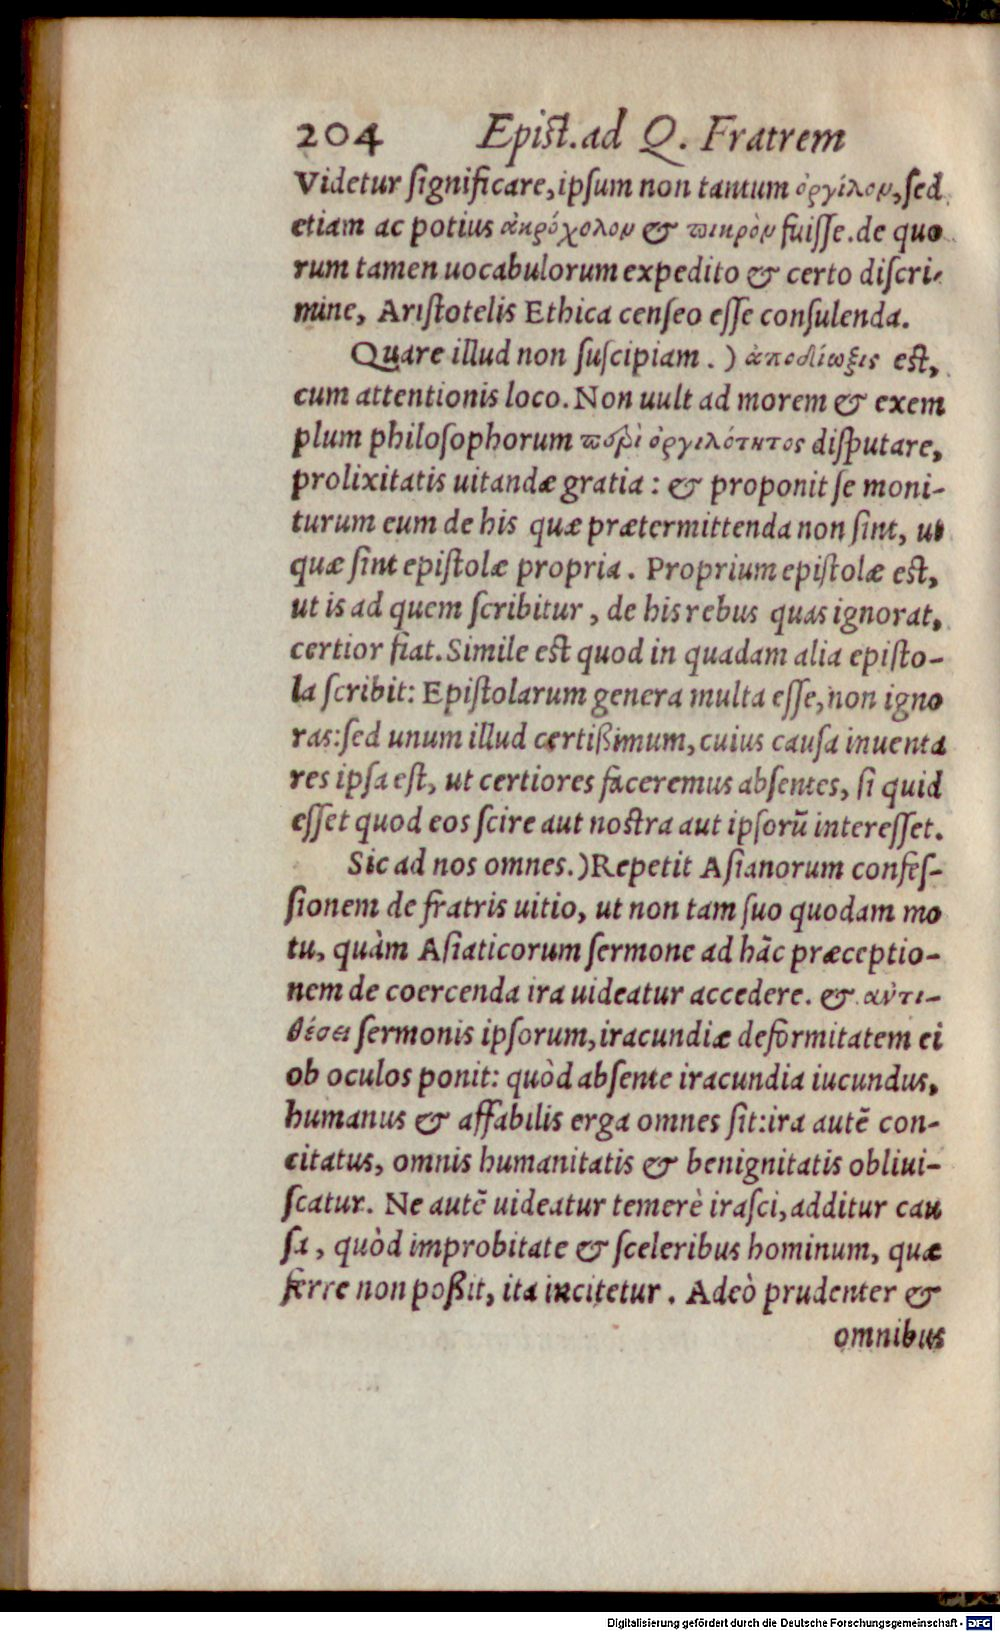 204 Epist. ad Q. Fratrem
Videtur significare, ipsum non tantum ὀργίλον, sed
etiam ac potius ἀκρόχολον & πικρὸν fuisse. de quo
rum tamen uocabulorum expedito & certo discri-
mine, Aristotelis Ethica censeo esse consulenda.
Quare illud non suscipiam. ) ἀποδίωξις est,
cum attentionis loco. Non uult ad morem & exem
plum philosophorum περὶ ὀργιλότητος disputare,
prolixitatis uitandæ gratia: & proponit se moni-
turum eum de his quæ prætermittenda non sint, ut
quæ sint epistolæ propria. Proprium epistolæ est,
ut is ad quem scribitur, de his rebus quas ignorat,
certior fiat. Simile est quod in quadam alia episto-
la scribit: Epistolarum genera multa esse, non igno
ras: sed unum illud certißimum, cuius causa inuenta
res ipsa est, ut certiores faceremus absentes, si quid
esset quod eos scire aut nostra aut ipsorũ interesset.
Sic ad nos omnes. ) Repetit Asianorum confes-
sionem de fratris uitio, ut non tam suo quodam mo
tu, quàm Asiaticorum sermone ad hãc præceptio-
nem de coercenda ira uideatur accedere. & ἀντι-
θέσει sermonis ipsorum, iracundiæ deformitatem ei
ob oculos ponit: quòd absente iracundia iucundus,
humanus & affabilis erga omnes sit: ira autẽ con-
citatus, omnis humanitatis & benignitatis obliui-
scatur. Ne autẽ uideatur temerè irasci, additur cau
sa, quòd improbitate & sceleribus hominum, quæ
ferre non poßit, ita incitetur. Adeò prudenter &
omnibus
Digitalisierung gefördert durch die Deutsche Forschungsgemeinschaft - DFG